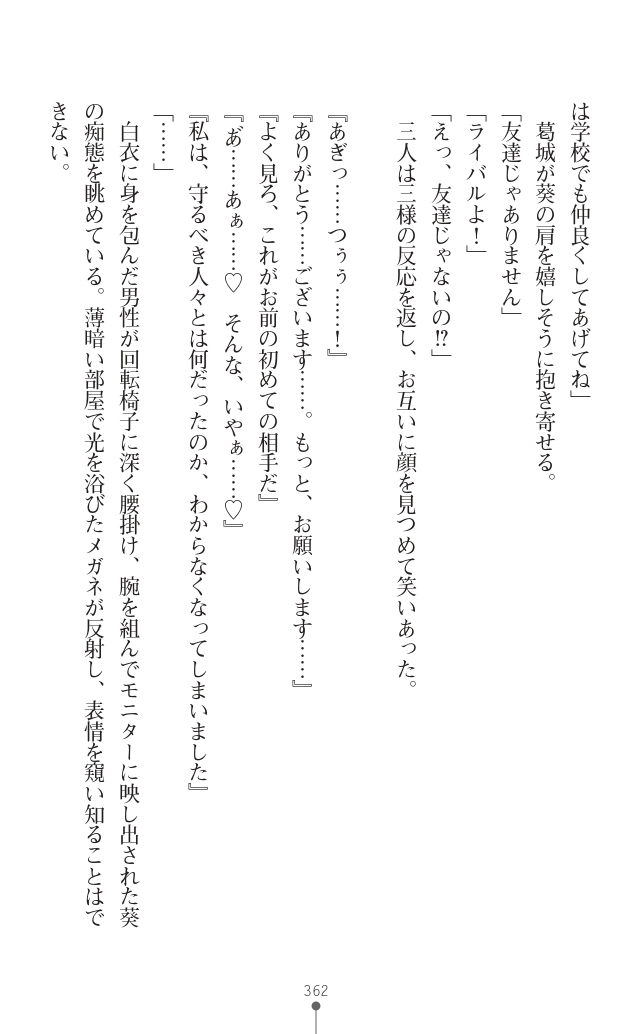 は学校でも仲良くしてあげてね」
　葛城が葵の肩を嬉しそうに抱き寄せる。
「友達じゃありません」
「ライバルよ！」
「えっ、友達じゃないの⁉」
　三人は三様の反応を返し、お互いに顔を見つめて笑いあった。
『あぎっ……つぅぅ……！』
『ありがとう……ございます……。もっと、お願いします……』
『よく見ろ、これがお前の初めての相手だ』
『あ゛……あぁ……♡　そんな、いやぁ……♡』
『私は、守るべき人々とは何だったのか、わからなくなってしまいました』
「……」
　白衣に身を包んだ男性が回転椅子に深く腰掛け、腕を組んでモニターに映し出された葵
の痴態を眺めている。薄暗い部屋で光を浴びたメガネが反射し、表情を窺い知ることはで
きない。
362